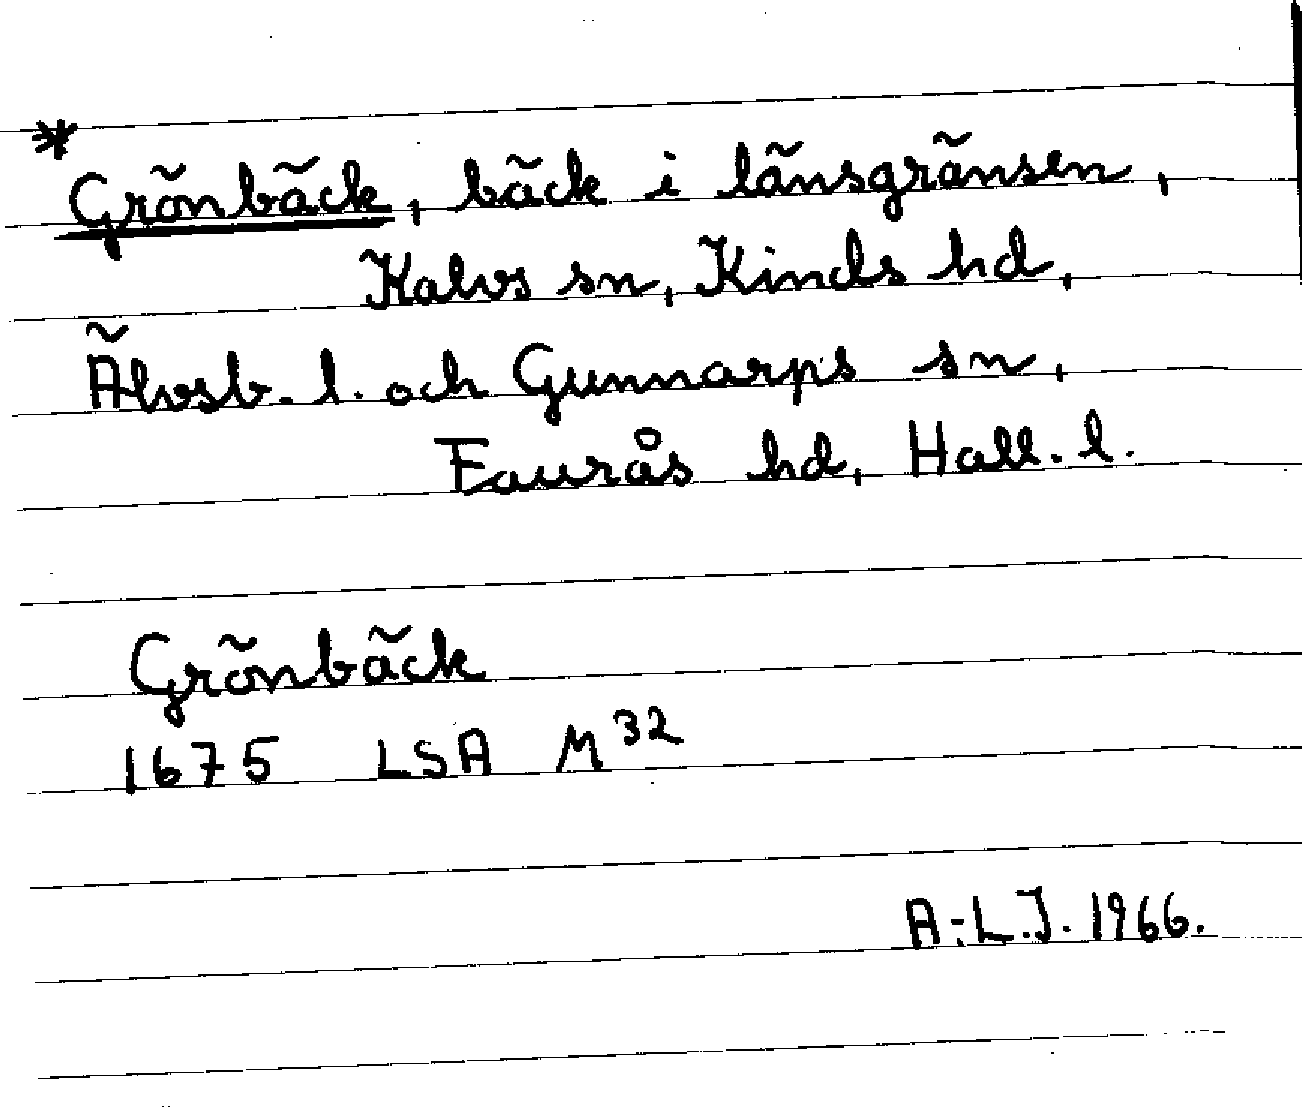 * Grönbäck, bäck i länsgränsen,
Kalvs sn, Kinds hd,
Älvsb. l. och Gunnarps sn,
Faurås hd, Hall. l.
Grönbäck
1675 LSA M 32
A.-L.J. 1966.